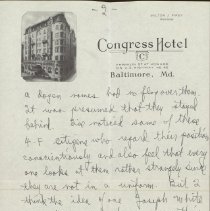 - 2 -
MILTON J. FIRST
Congress Hotel
C
FRANKLIN ST AT HOWARD
Baltimore, Md.
a dozen names had to fly over them.
It was presumed that they stayed
behind. I've noticed some of these
4-F citizens who regard their position
conscientiously and also feel that every
one looks at them rather strangely since
they are not in a uniform. But I
think the idea of one Joseph White